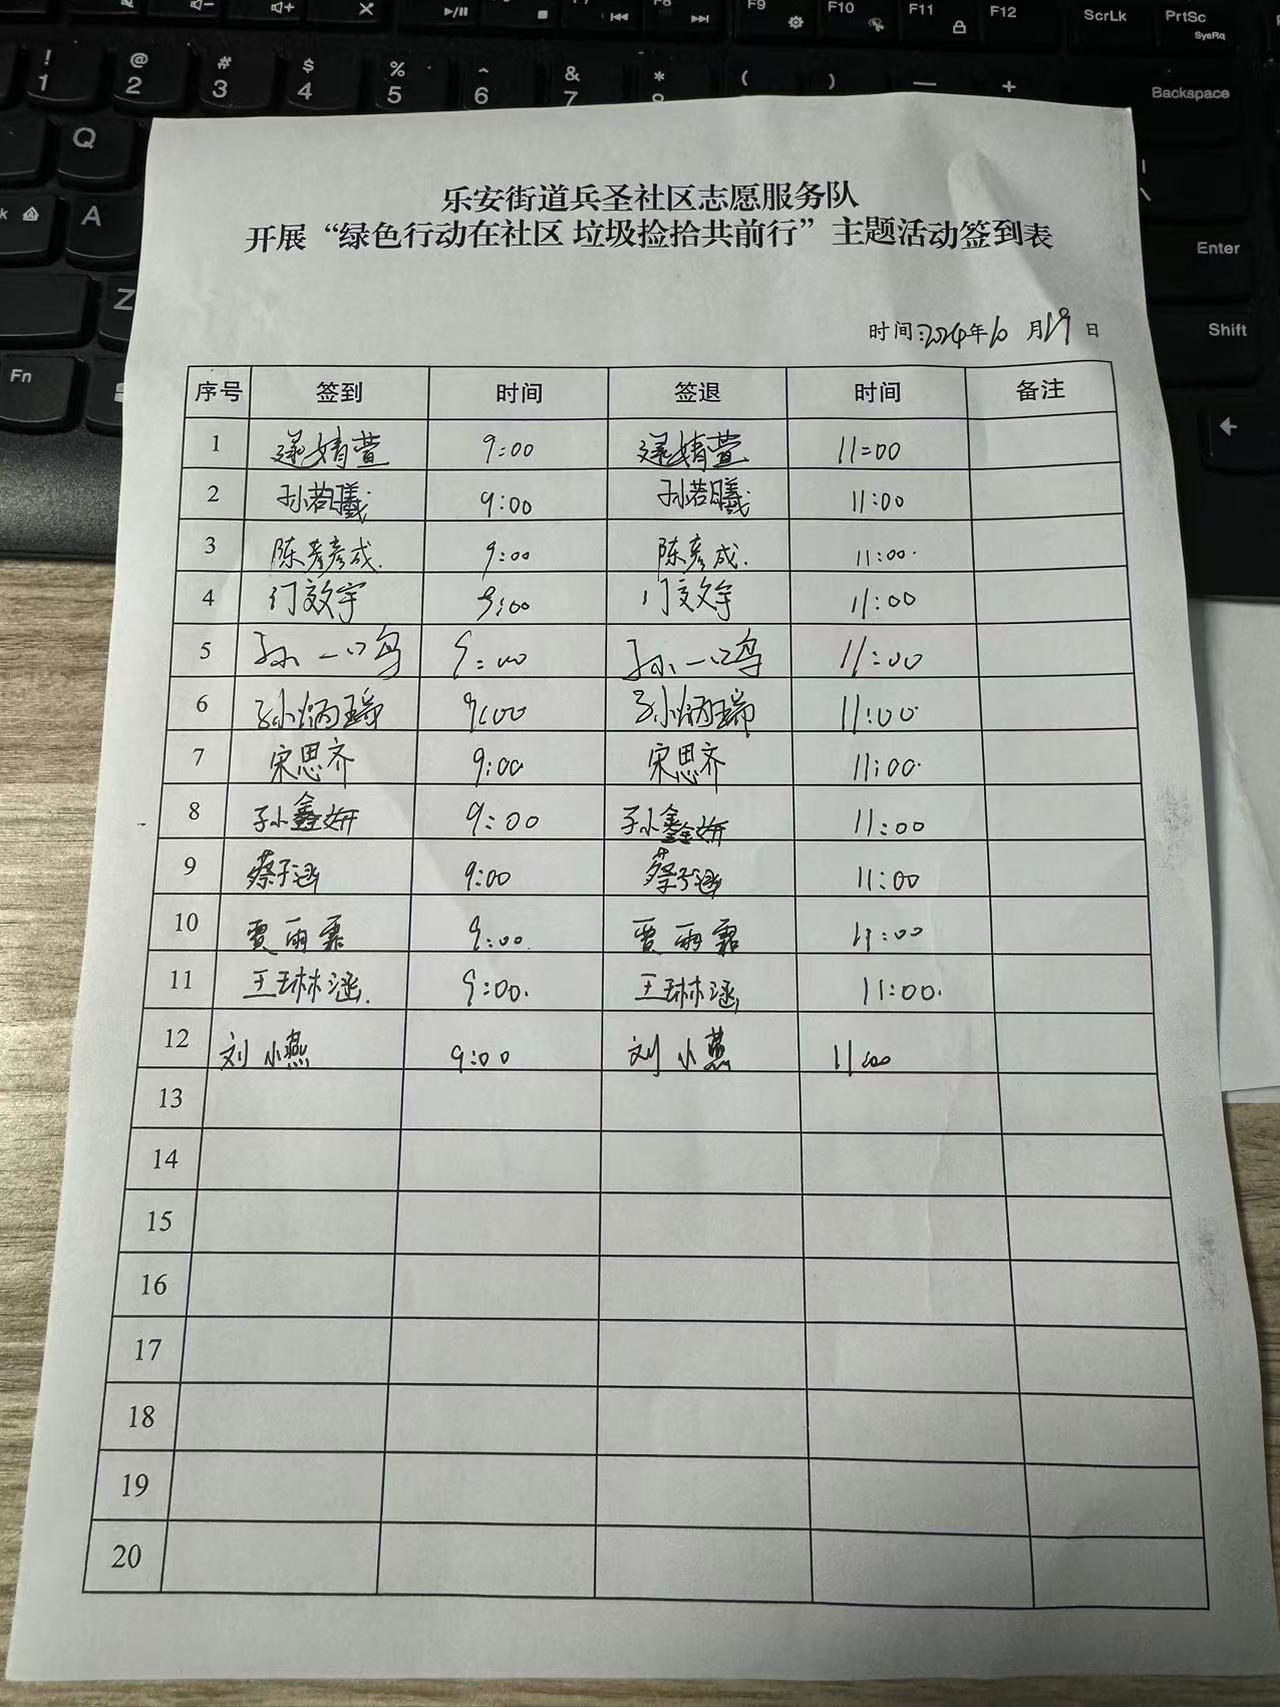 ! 1 @ 2 # 3 $ 4 % 5 ^ 6 & 7 * ( ) — +
F9 F10 F11 F12 ScrLk PrtSc
SysRq
Backspace
Q
A
Enter
Z
Shift
Fn
乐安街道兵圣社区志愿服务队
开展“绿色行动在社区 垃圾捡拾共前行”主题活动签到表
时间:2024年10月19日
序号 签到 时间 签退 时间 备注
1 婧萱 9:00 婧萱 11:00
2 孙若曦 9:00 孙若曦 11:00
3 陈彦成. 9:00 陈彦成. 11:00.
4 门效宇 9:00 门效宇 11:00
5 孙一鸣 9:00 孙一鸣 11:00
6 孙炳瑞 9:00 孙炳瑞 11:00
7 宋思齐 9:00 宋思齐 11:00.
8 孙鑫妍 9:00 孙鑫妍 11:00
9 蔡子涵 9:00 蔡子涵 11:00
10 贾雨霏 9:00. 贾雨霏 11:00
11 王琳涵. 9:00. 王琳涵 11:00.
12 刘小燕 9:00 刘小燕 11:00
13
14
15
16
17
18
19
20